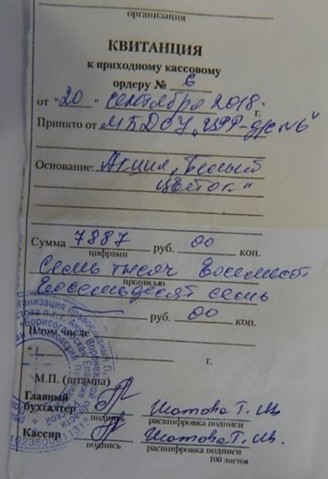 организация
КВИТАНЦИЯ
к приходному кассовому
ордеру № 6
от "20" сентября 2018 г.
Принято от МБДОУ "ЦРР-д/с №6"
Основание: Акция "Белый
цветок"
Сумма 7887 руб. 00 коп.
цифрами
Семь тысяч восемьсот
прописью
восемьдесят семь
руб. 00 коп.
В том числе
г.
М.П. (штампа)
Главный
бухгалтер Шатова Т. М.
подпись расшифровка подписи
Кассир Шатова Т. М.
подпись расшифровка подписи
100 листов